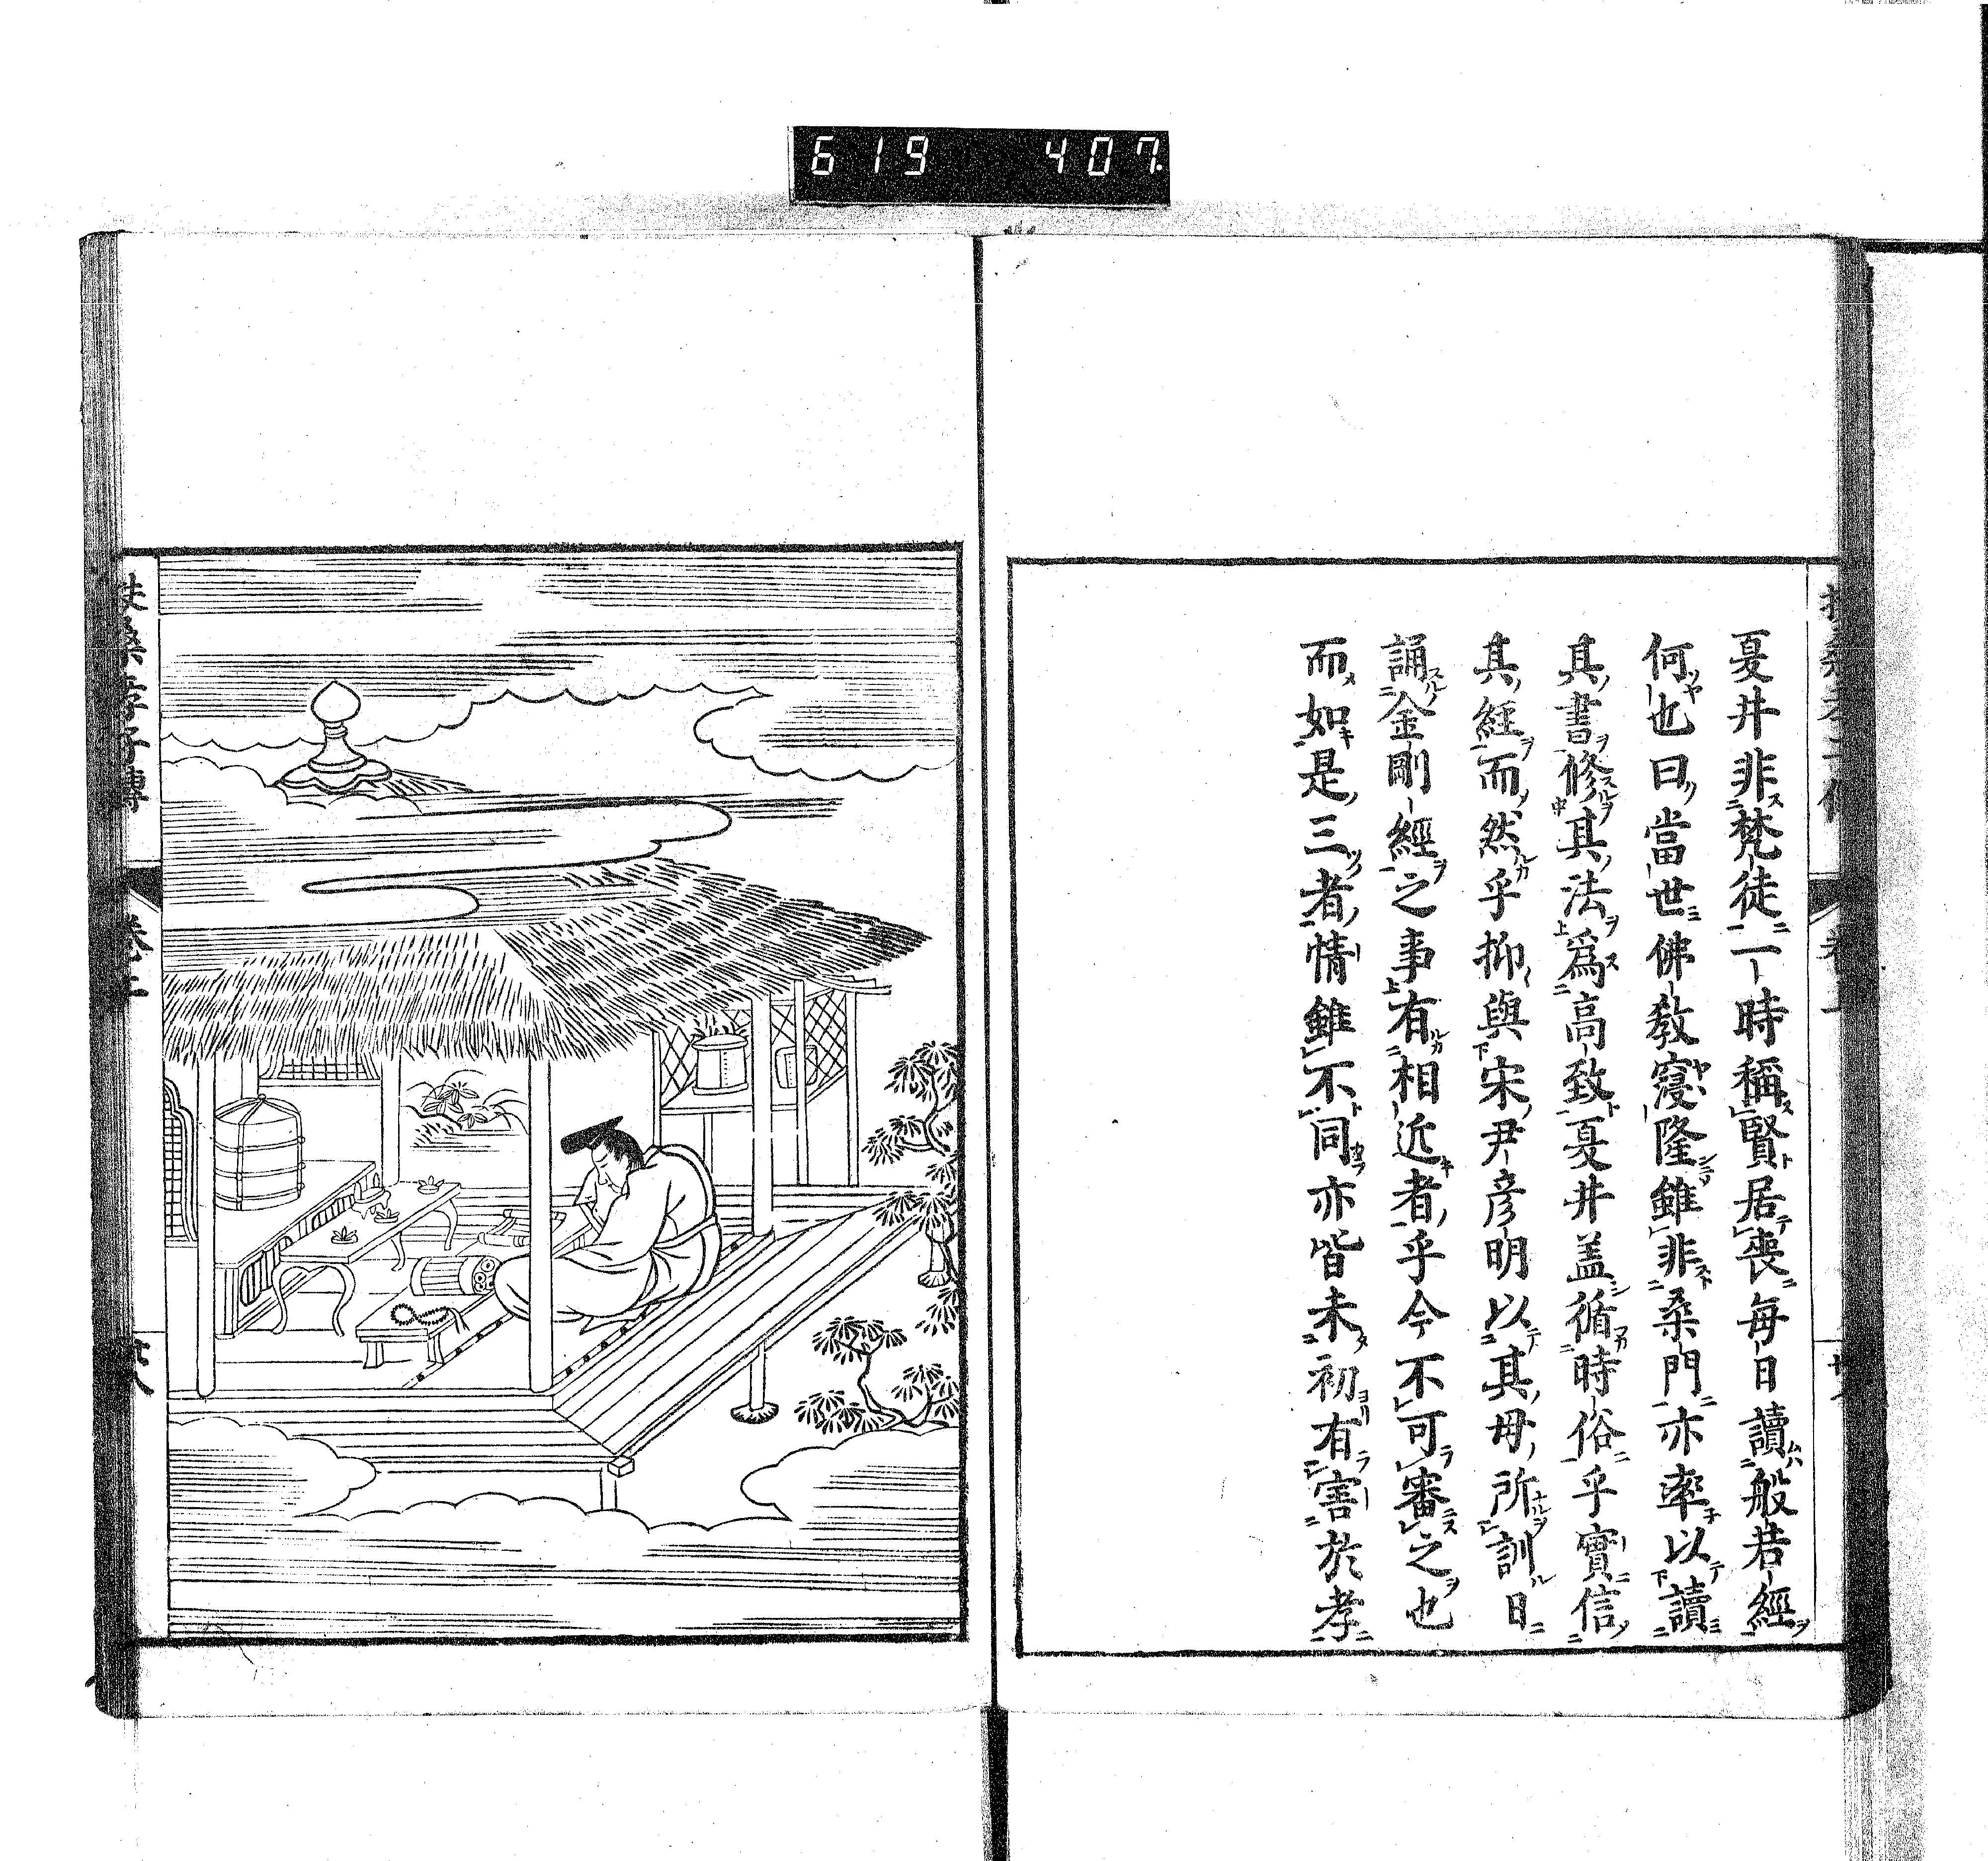 619 407
夏井非梵徒一時稱賢居喪每日讀般若經
何也曰當世佛教寖隆雖非桑門亦率以讀
其書修其法爲高致夏井盖循時俗乎實信
其經而然乎抑與宋尹彦明以其母所訓日
誦金剛經之事有相近者乎今不可審之也
而如是三者情雖不同亦皆未初有害於孝
扶桑孝子傳
卷上